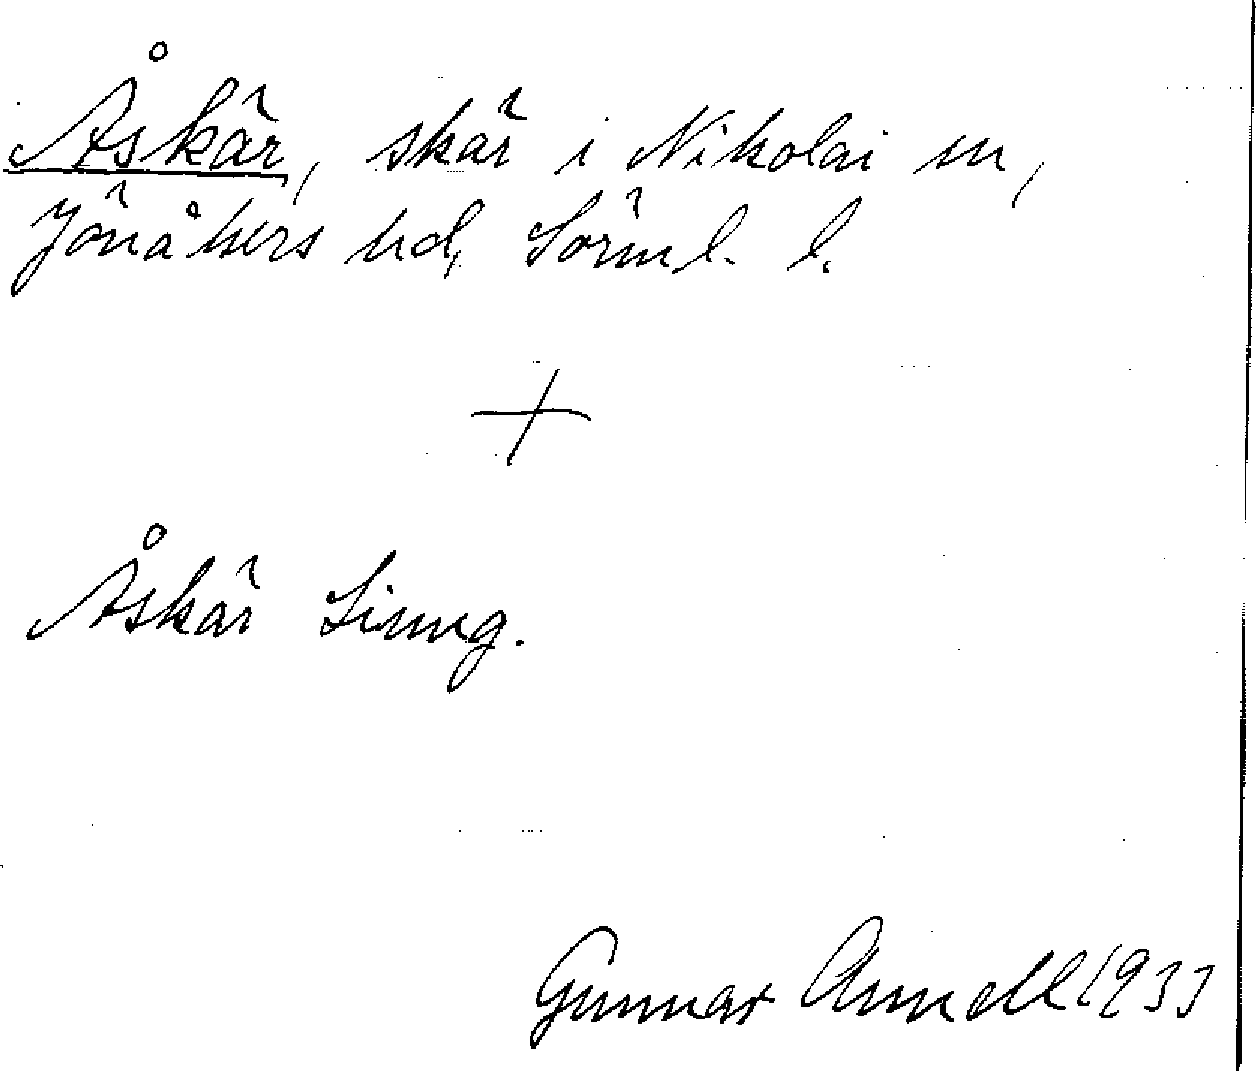 Åskär, skär i Nikolai sn,
Jönåkers hd, Sörml. l.
+
Åskär
Gunnar 1933